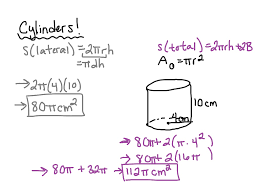 Cylinders!
S(lateral) = 2πrh
= πdh
→ 2π(4)(10)
→ 80π cm²
S(total) = 2πrh + 2B
A₀ = πr²
10 cm
4cm
→ 80π + 2(π·4²)
→ 80π + 2(16π)
→ 80π + 32π → 112π cm²